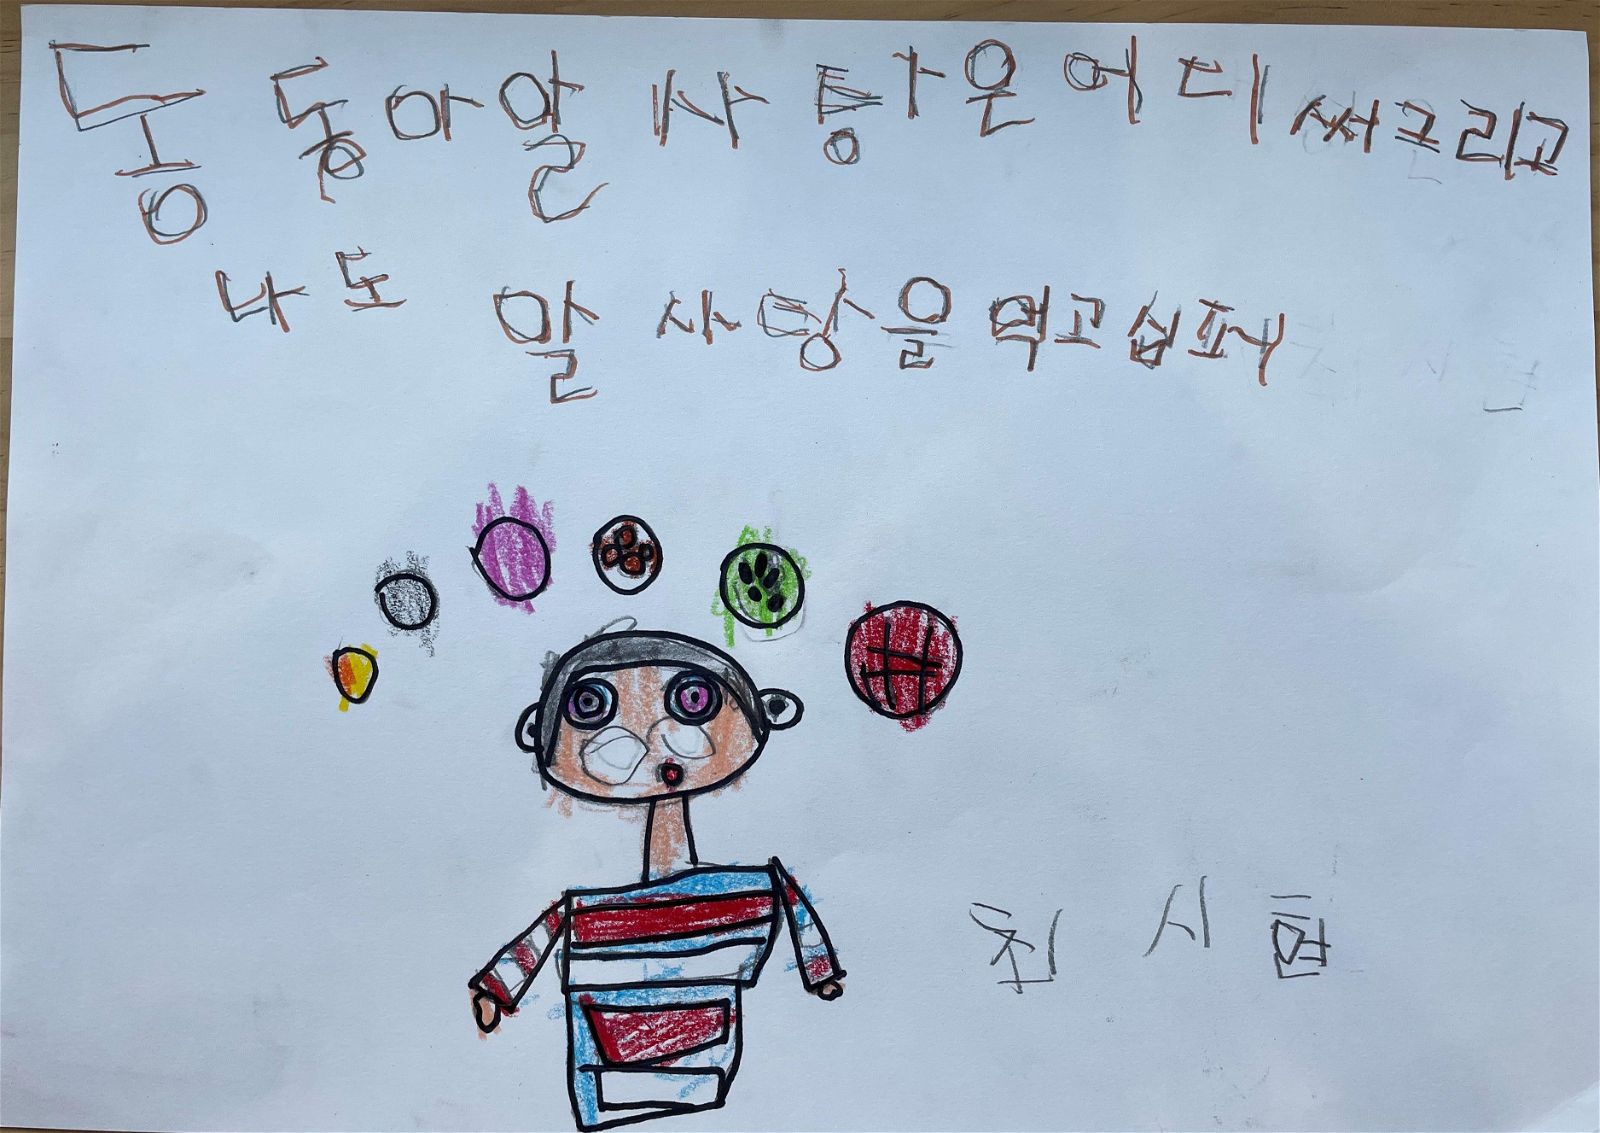 동동아알사탕은어디써그리고
나도 알사탕을먹고십퍼
천시현